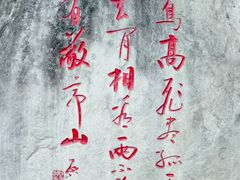 鸟高飞尽孤
去闲相看两不
有敬亭山